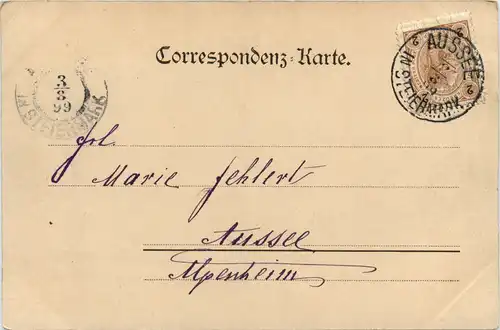 Correspondenz-Karte.
AUSSEE
IN STEIERMARK
2
2
3
8
99
IN STEIERMARK
Frl.
Marie Fehlert
Aussee
Alpenheim